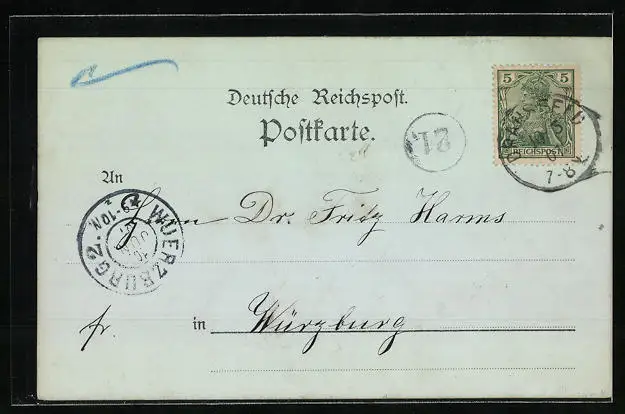 Deutsche Reichspost.
Postkarte.
5 5
REICHSPOST
7-8
21
An
Herrn Dr. Fritz Harms
WUERZBURG 2.
fr. in Würzburg